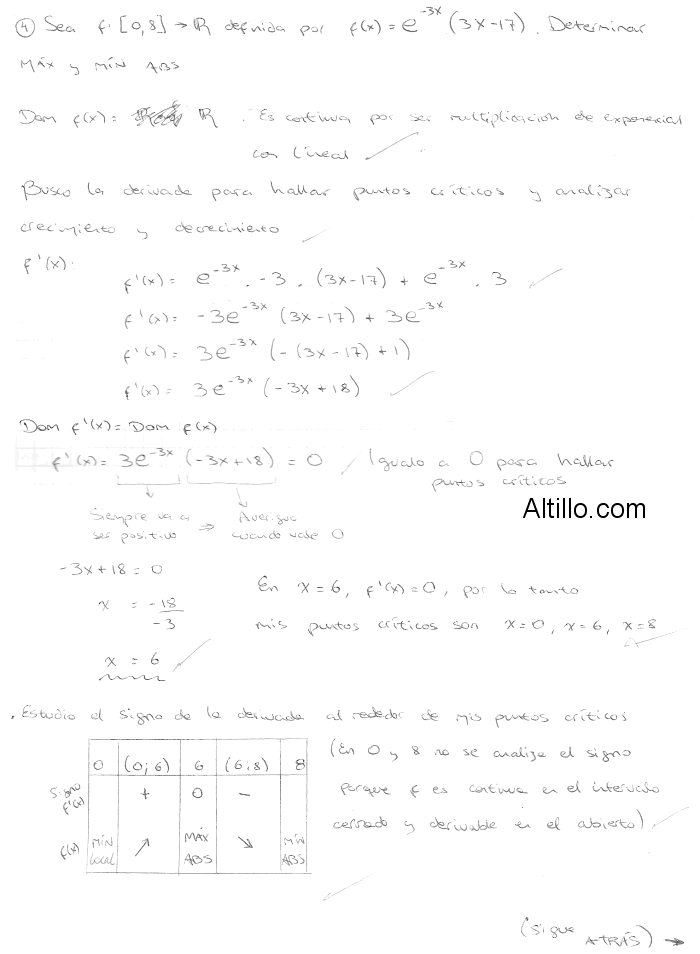 ④ Sea f: [0,8] → R definida por f(x) = e^-3x (3x-17). Determinar
MÁX y MÍN ABS
Dom f(x) = R . Es continua por ser multiplicación de exponencial
con lineal
Busco la derivada para hallar puntos críticos y analizar
crecimiento y decrecimiento
f'(x):
f'(x) = e^-3x . -3 . (3x-17) + e^-3x . 3
f'(x) = -3e^-3x (3x-17) + 3e^-3x
f'(x) = 3e^-3x (-(3x-17)+1)
f'(x) = 3e^-3x (-3x+18)
Dom f'(x) = Dom f(x)
f'(x) = 3e^-3x (-3x+18) = 0 / Igualo a 0 para hallar
puntos críticos
Altillo.com
Siempre va a ser positivo ⇒ Averiguo cuando vale 0
-3x+18 = 0
x = -18/-3
x = 6
En x=6, f'(x)=0, por lo tanto
mis puntos críticos son x=0, x=6, x=8
. Estudio el signo de la derivada al rededor de mis puntos críticos
0 (0;6) 6 (6;8) 8
Signo f'(x) + 0 -
f(x) MÍN local ↗ MÁX ABS ↘ MÍN ABS
(En 0 y 8 no se analiza el signo
porque f es continua en el intervalo
cerrado y derivable en el abierto)
(sigue ATRÁS) →